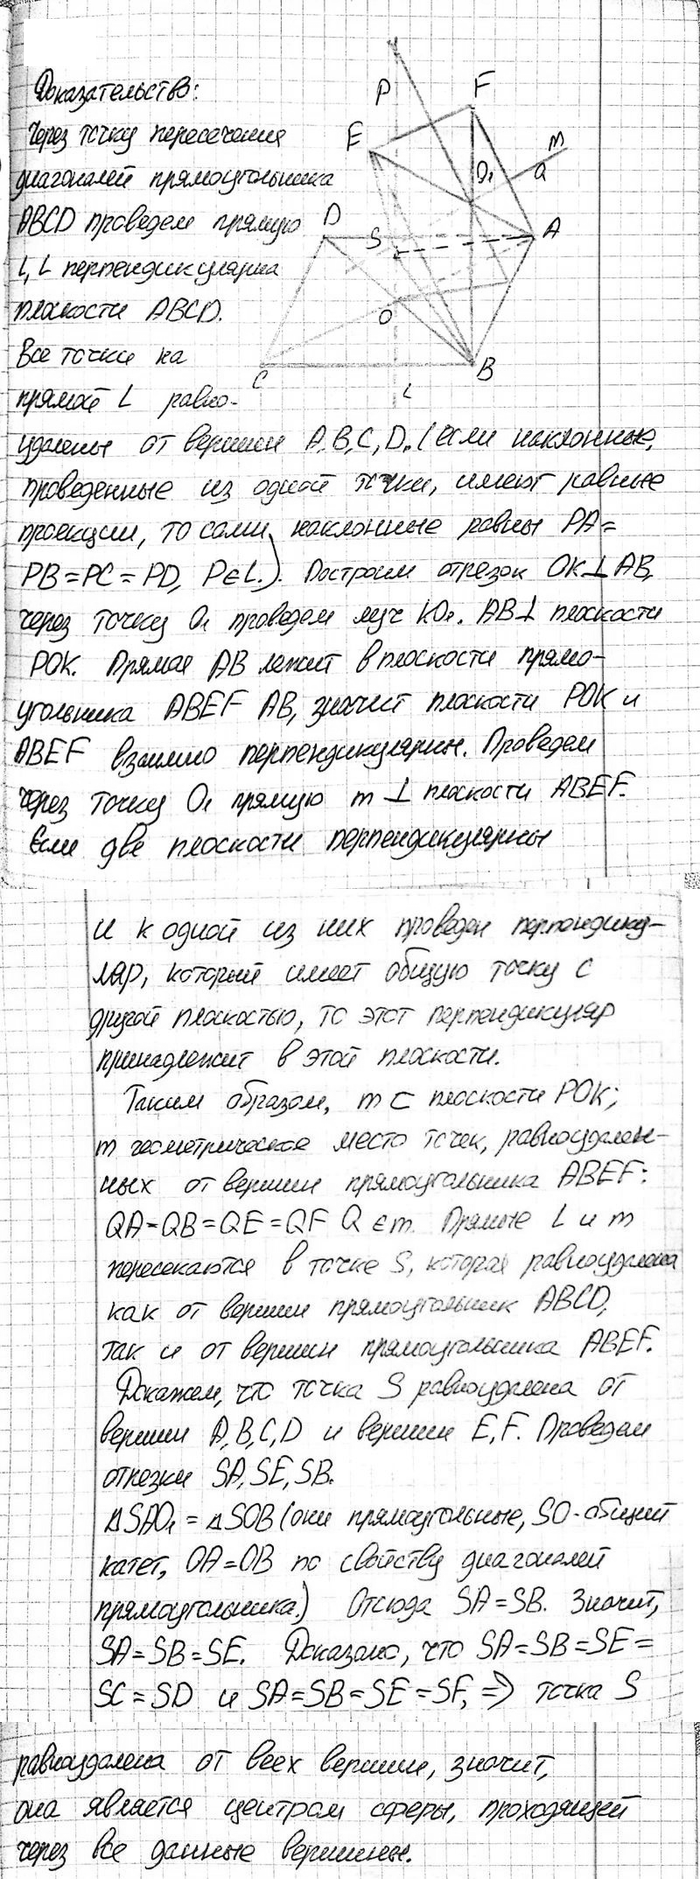 Доказательство:
Через точку пересечения
диагоналей прямоугольника
ABCD проведем прямую
L, L перпендикулярна
плоскости ABCD.
Все точки на
прямой L равно-
P
F
E
M
O₁
Q
D
S
A
O
C
B
L
удалены от вершин A,B,C,D. (если наклонные,
проведенные из одной точки, имеют равные
проекции, то сами наклонные равны PA=
PB=PC=PD, P∈L.). Построим отрезок OK⊥AB,
через точку O₁ проведем луч KO₁. AB⊥ плоскости
POK. Прямая AB лежит в плоскости прямо-
угольника ABEF AB, значит плоскости POK и
ABEF взаимно перпендикулярны. Проведем
через точку O₁ прямую m ⊥ плоскости ABEF.
Если две плоскости перпендикулярны
и к одной из них проведен перпендику-
ляр, который имеет общую точку с
другой плоскостью, то этот перпендикуляр
принадлежит в этой плоскости.
Таким образом, m ⊂ плоскости POK;
m геометрическое место точек, равноудален-
ных от вершин прямоугольника ABEF:
QA=QB=QE=QF Q∈m. Прямые L и m
пересекаются в точке S, которая равноудалена
как от вершин прямоугольник ABCD,
так и от вершин прямоугольника ABEF.
Докажем, что точка S равноудалена от
вершин A,B,C,D и вершин E,F. Проведем
отрезки SA, SE, SB.
△SAO₁ = △SOB (они прямоугольные, SO-общий
катет, OA=OB по свойству диагоналей
прямоугольника.) Отсюда SA=SB. Значит,
SA=SB=SE. Доказано, что SA=SB=SE=
SC=SD и SA=SB=SE=SF, ⇒ точка S
равноудалена от всех вершин, значит,
она является центром сферы, проходящей
через все данные вершины.